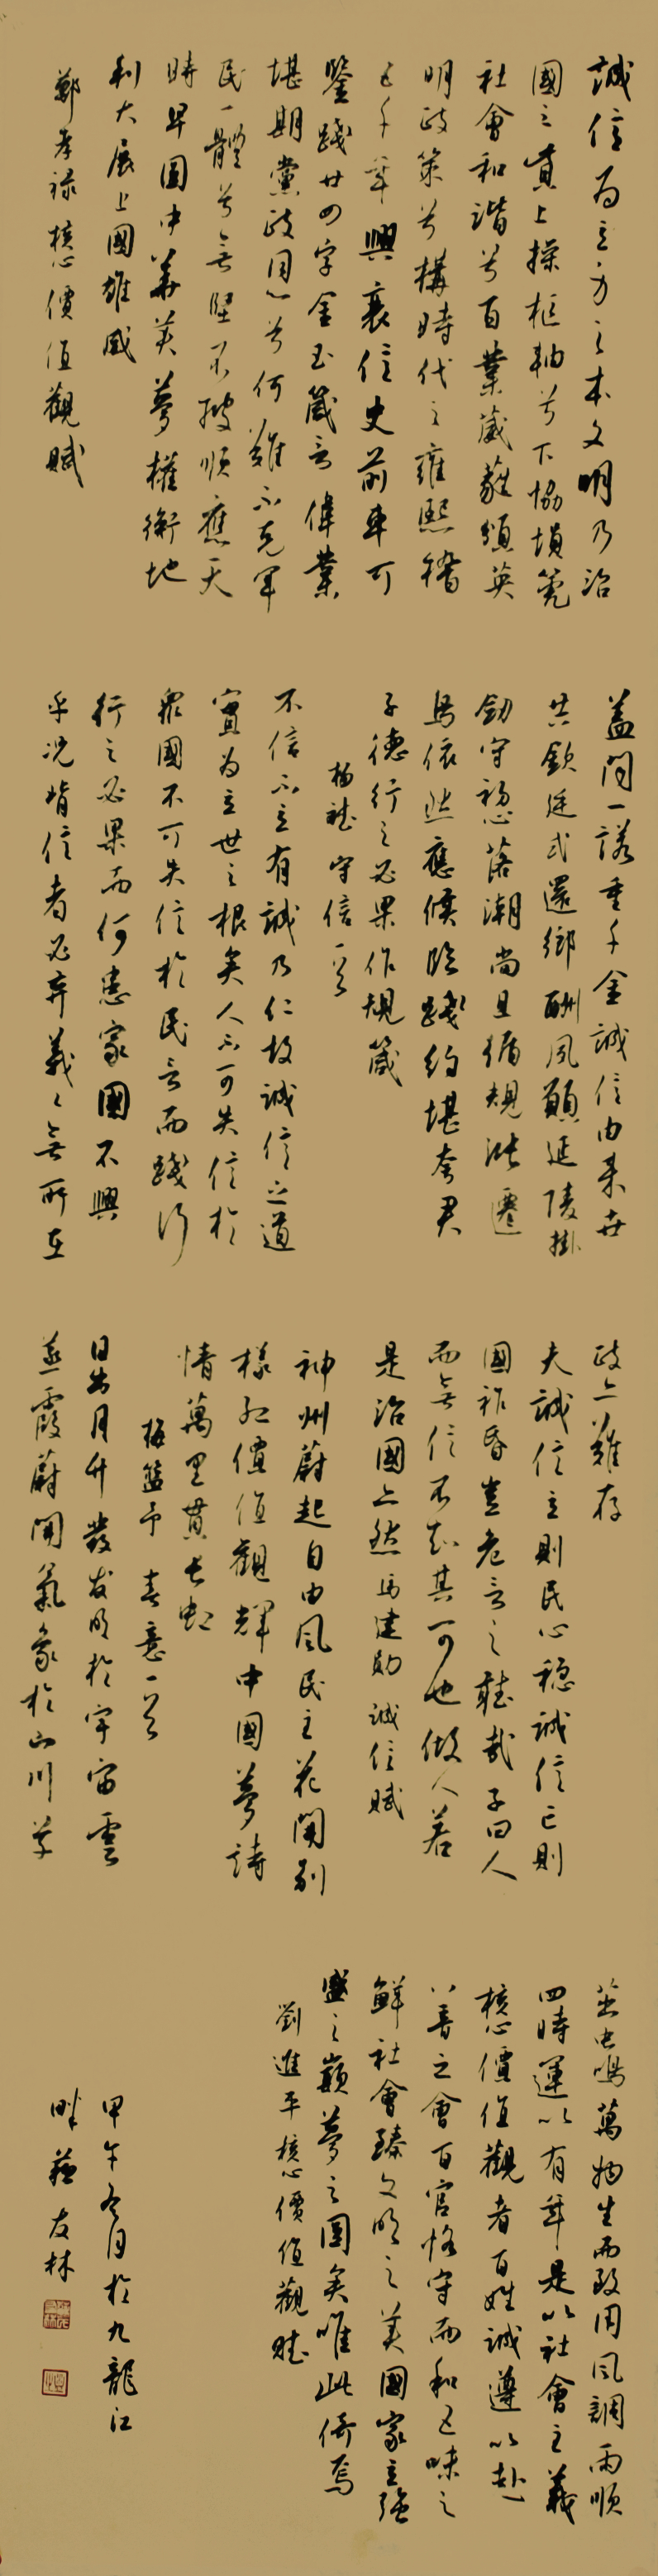 誠信為立身之本文明乃治
國之貞上操樞軸兮下協塤篪
社會和諧兮百業葳蕤頌英
明政策兮構時代之雍熙稽
五千年興衰信史前車可
鑒踐廿四字金玉箴言偉業
堪期黨政同心兮何難不克軍
民一體兮無堅不摧順應天
時早圓中華美夢權衡地
利大展上國雄威
鄭孝祿核心價值觀賦
蓋聞一諾重千金誠信由來世
共欽延式還鄉酬夙願延陵掛
劍守初心落潮尚且循規汛遷
鳥依然應候臨踐約堪夸君
子德行之必果作規箴
楊 守信一首
不信不立有誠乃仁故誠信之道
實為立世之根矣人不可失信於
眾國不可失信於民言而踐行
行之必果而何患家國不興
乎況背信者必棄義義無所在
政亦難存
夫誠信立則民心穩誠信亡則
國祚昏豈危言之聽哉子曰人
而無信不知其可也做人若
是治國亦然 馬建勛誠信賦
神州蔚起自由風民主花開別
樣紅價值觀輝中國夢詩
情萬里貫長虹
梅 春意一首
日出月升發光明於宇宙雲
蒸霞蔚開氣象於山川草
茁虫鳴萬物生而致用風調雨順
四時運以有年是以社會主義
核心價值觀者百姓誠遵以赴
八善之會百官恪守而和五味之
鮮社會臻文明之美國家立強
盛之巔夢之圓矣唯此倚焉
劉進平核心價值觀賦
甲午冬月於九龍江
畔 蘇友林